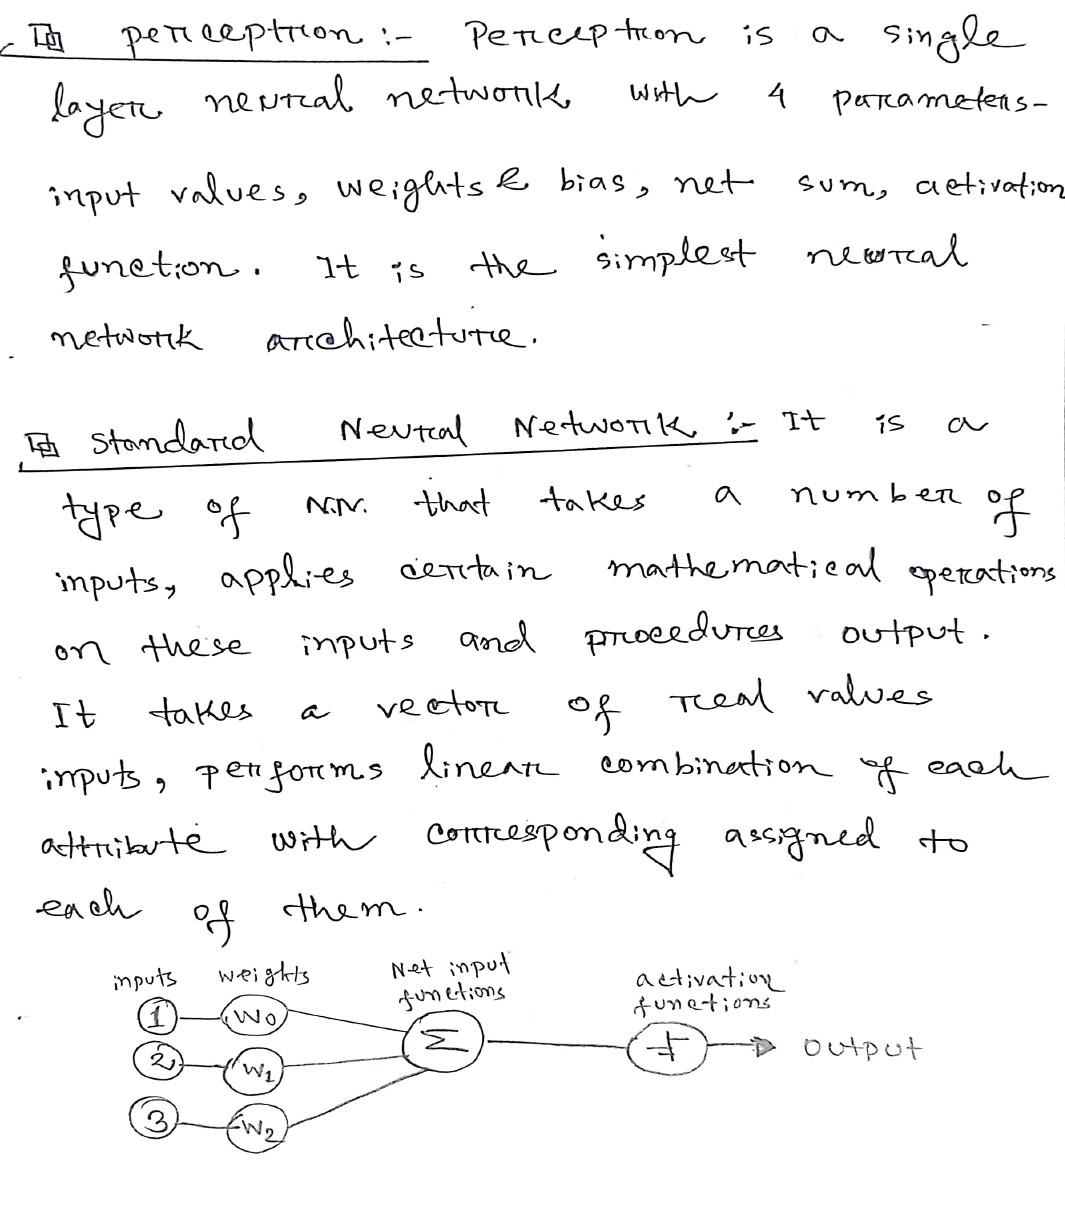 perceptron :- Perceptron is a single
layer neural network with 4 parameters-
input values, weights & bias, net sum, activation
function. It is the simplest neural
network architecture.
Standard Neural Network :- It is a
type of N.N. that takes a number of
inputs, applies certain mathematical operations
on these inputs and procedures output.
It takes a vector of real values
inputs, performs linear combination of each
attribute with corresponding assigned to
each of them.
inputs weights Net input functions activation functions
1 W0 Σ
2 W1 output
3 W2